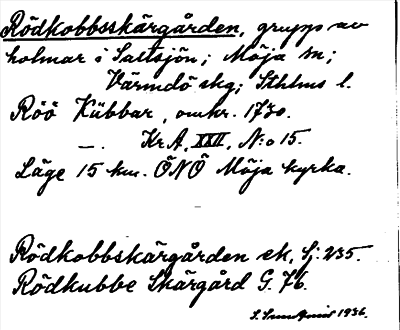 Rödkobbsskärgården, grupp av
holmar i Saltsjön; Möja sn;
Värmdö skg; Sthlms l.
Röö Kübbar, omkr. 1730.
—. Kr A, XXII, N:o 15.
Läge 15 km. ÖNÖ Möja kyrka.
Rödkobbskärgården ek, Sj: 235.
Rödkubbe Skärgård G. 76.
1936.